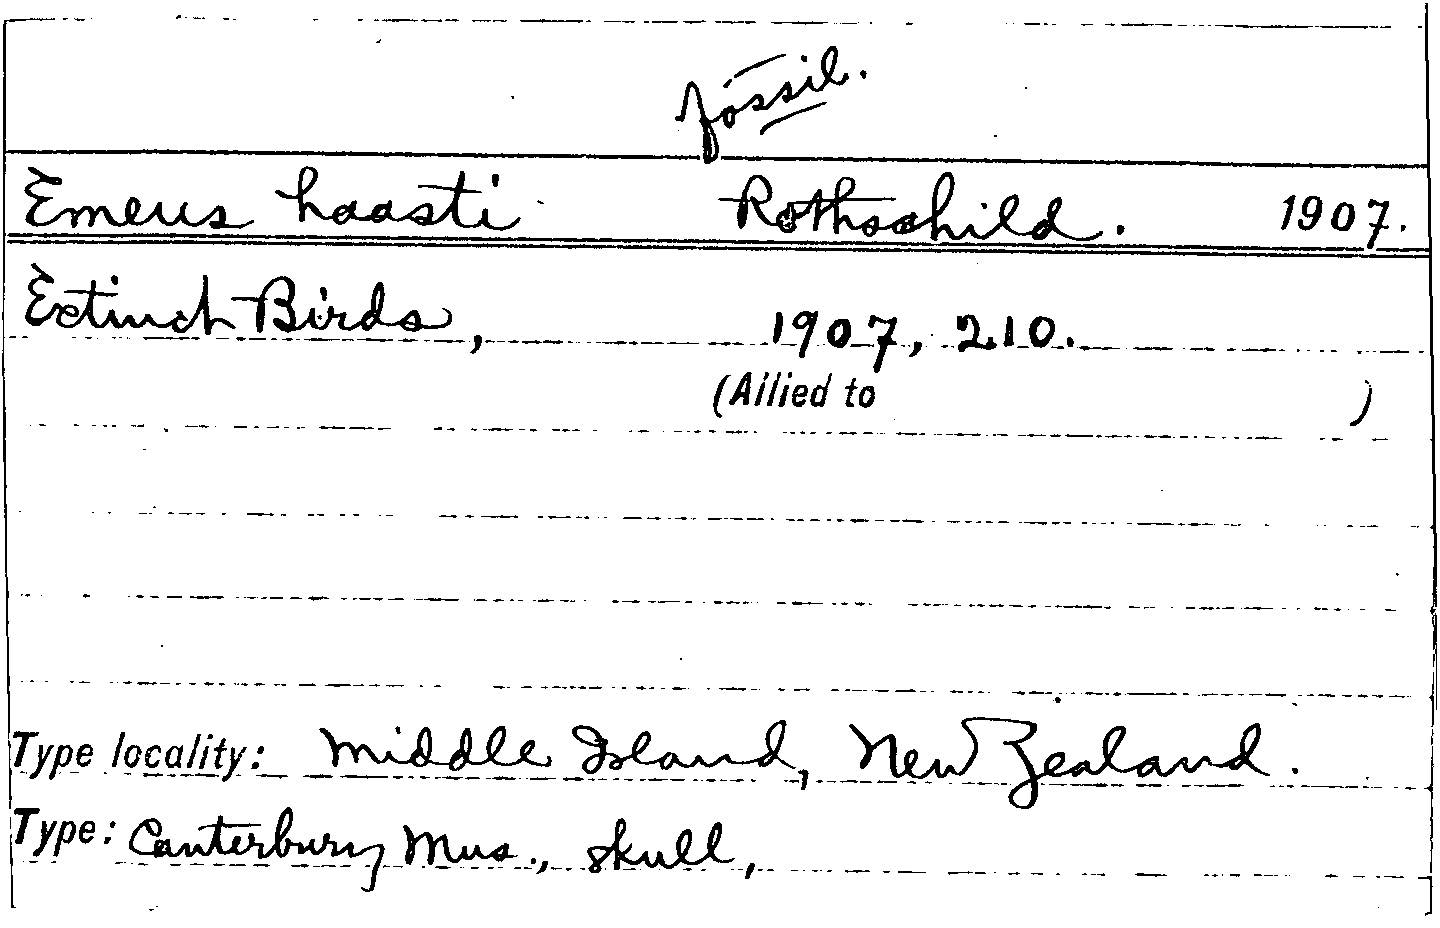 Fossil.
Emeus haasti Rothschild. 1907.
Extinct Birds, 1907, 210.
(Allied to )
Type locality: Middle Island, New Zealand.
Type: Canterbury Mus., skull,